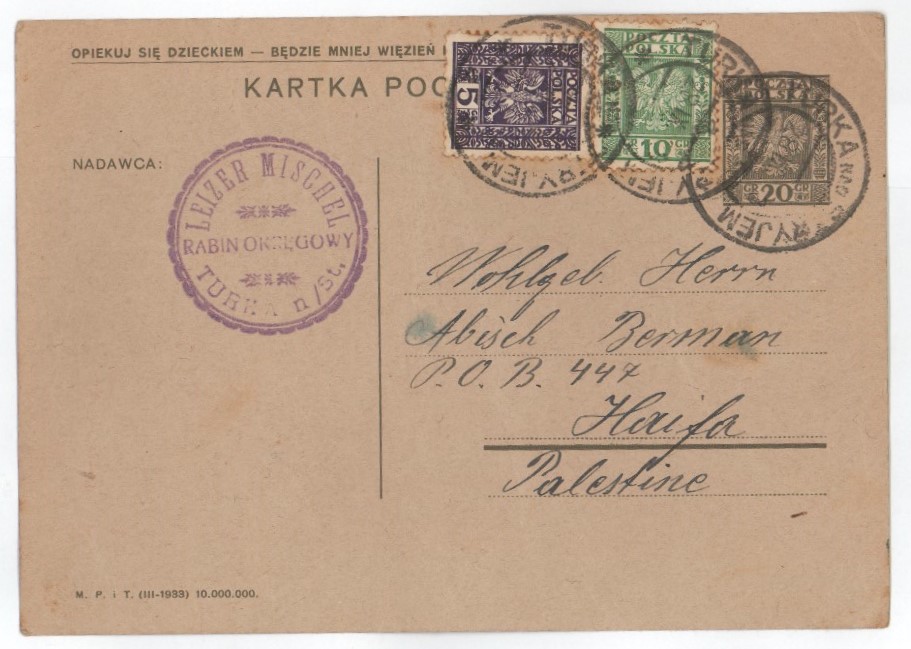 OPIEKUJ SIĘ DZIECKIEM — BĘDZIE MNIEJ WIĘZIEŃ I
KARTKA POC
POCZTA
POLSKA
5
POCZTA
POLSKA
GR 10 GR
GR 20 GR
TURKA
STRYJEM
TURKA NAD
STRYJEM
NADAWCA:
LEIZER MISCHEL
RABIN OKRĘGOWY
TURKA n/St.
Wohlgeb. Herrn
Abisch Berman
P.O.B. 447
Haifa
Palestine
M. P. i T. (III-1933) 10.000.000.